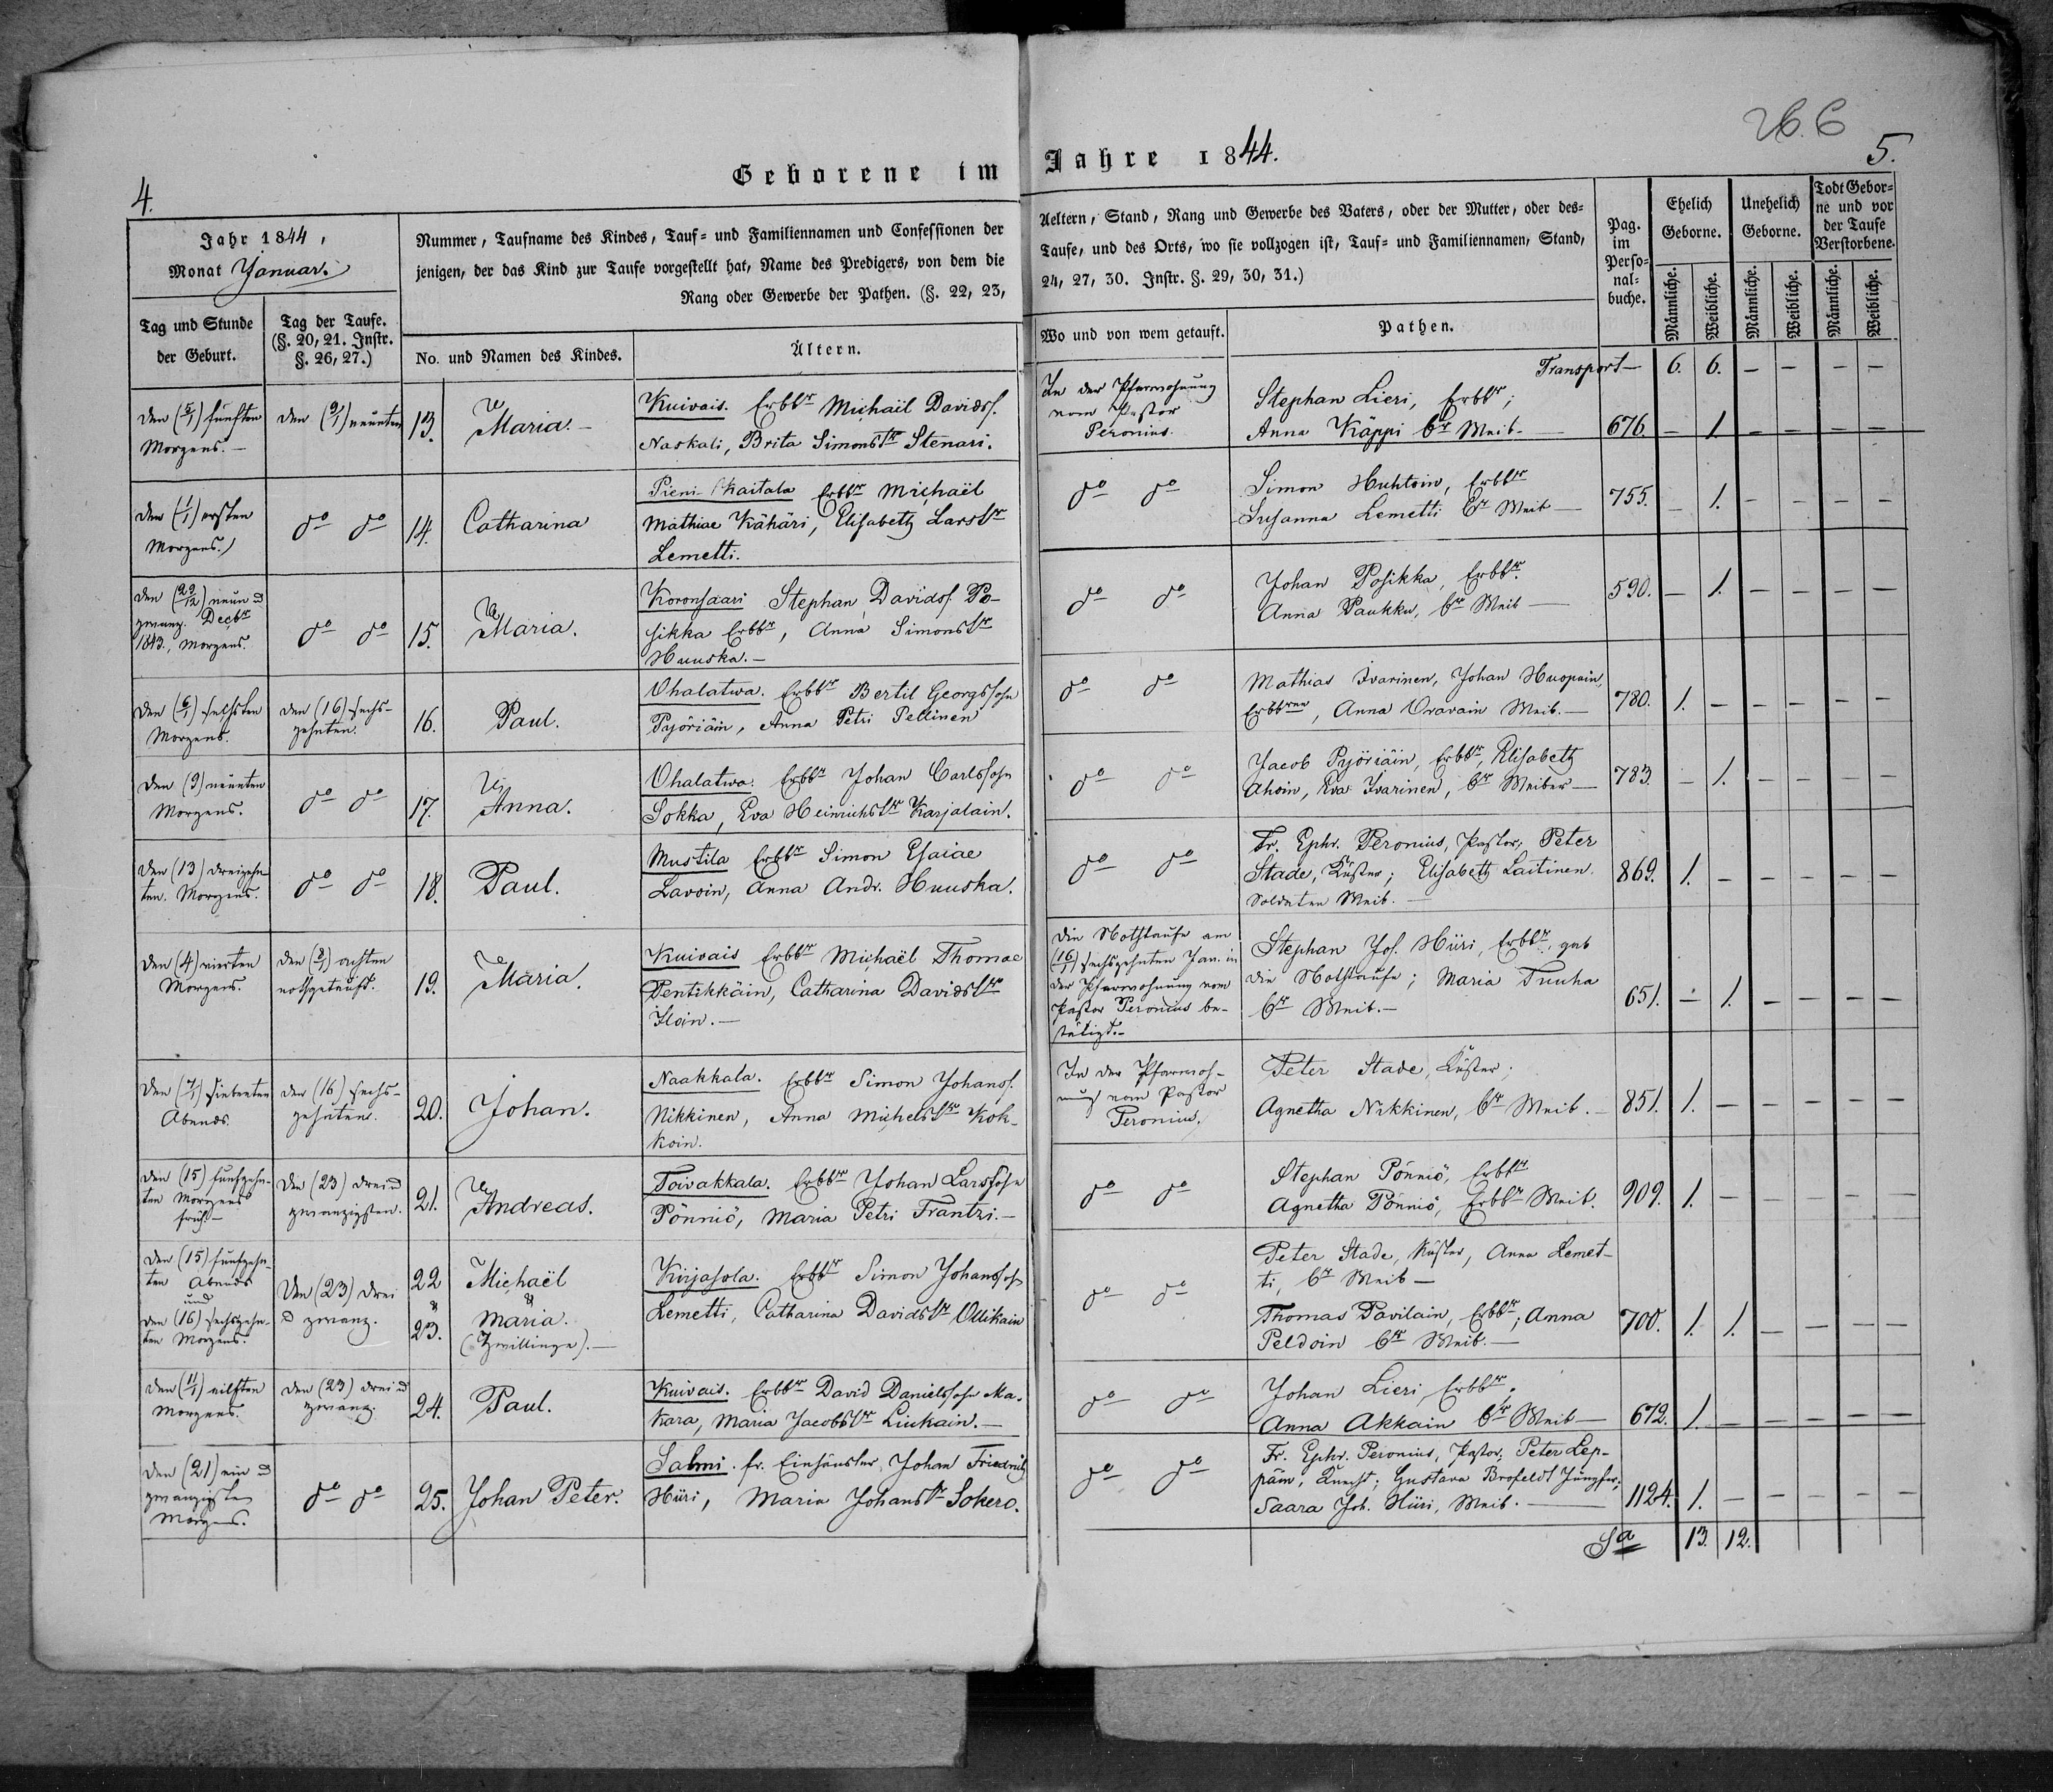 266
4.
Geborene im
Jahre 1844.
5.
Jahr 1844,
Monat Januar.
Tag und Stunde
der Geburt.
Tag der Taufe.
(§. 20, 21. Instr.
§. 26, 27.)
Nummer, Taufname des Kindes, Tauf- und Familiennamen und Confessionen der
jenigen, der das Kind zur Taufe vorgestellt hat, Name des Predigers, von dem die
Rang oder Gewerbe der Pathen. (§. 22, 23,
No. und Namen des Kindes.
Ältern.
Aeltern, Stand, Rang und Gewerbe des Vaters, oder der Mutter, oder des-
Taufe, und des Orts, wo sie vollzogen ist, Tauf- und Familiennamen, Stand,
24, 27, 30. Instr. §. 29, 30, 31.)
Wo und von wem getauft.
Pathen.
Pag.
im
Perso-
nal-
buche.
Ehelich
Geborne.
Unehelich
Geborne.
Todt Gebor-
ne und vor
der Taufe
Verstorbene.
Männliche.
Weibliche.
Männliche.
Weibliche.
Männliche.
Weibliche.
Transport — 6. 6. — — — —
Den (5/1) fünften
Morgens. —
den (9/1) neunten
13.
Maria. —
Kuivais. Erbbr Michaël Davidss.
Naskali, Brita Simonstr Stenari.
In der Pfarrwohnung
vom Pastor
Peronius.
Stephan Lieri, Erbbr;
Anna Käppi br Weib. —
676. — 1. — — — —
Den (1/1) ersten
Morgens.
do do
14.
Catharina
Pieni-Kaitala Erbbr Michaël
Mathiae Kähäri, Elisabeth Larstr
Lemetti.
do do
Simon Huhtoin, Erbbr
Susanna Lemetti Er Weib —
755. — 1. — — — —
Den (29/12) neun u
zwanz. Decbr
1843., Morgens.
do do
15.
Maria.
Koronsaari Stephan Davidss. Po-
sikka Erbbr, Anna Simonstr
Huuska. —
do do
Johan Posikka, Erbbr.
Anna Paukku, br Weib —
590. — 1. — — — —
Den (6/1) sechsten
Morgens.
den (16) sechs-
zehnten.
16.
Paul.
Ohalatwa. Erbbr Bertil Georgssohn
Pyöriäin, Anna Petri Pellinen
do do
Mathias Ivarinen, Johan Huopain,
Erbbren, Anna Oravain Weib. —
780. 1. — — — — —
Den (9) neunten
Morgens.
do do
17.
Anna.
Ohalatwa. Erbbr Johan Carlssohn
Sokka, Eva Heinrichstr Karjalain.
do do
Jacob Pyöriäin, Erbbr, Elisabeth
Ahoin, Eva Ivarinen, br Weiber —
783. — 1. — — — —
Den (13) dreizehn-
ten. Morgens.
do do
18.
Paul.
Mustila Erbbr Simon Esaiae
Lavoin, Anna Andr. Huuska.
do do
Fr. Ephr. Peronius, Pastor; Peter
Stade, Küster; Elisabeth Laitinen.
Soldaten Weib. —
869. 1. — — — — —
Den (4) vierten
Morgens.
den (8/1) achten
nothgetauft.
19.
Maria.
Kuivais Erbbr Michaël Thomae
Pentikkäin, Catharina Davidstr
Iloin. —
Die Nothtaufe am
(16/1) sechszehnten Jan. in
der Pfarrwohnung vom
Pastor Peronius be-
stätigt. —
Stephan Joh. Hüri, Erbbr, gab
die Nothtaufe; Maria Tuuha
br Weib. —
651. — 1. — — — —
Den (7/1) siebenten
Abends.
den (16) sechs-
zehnten.
20.
Johan.
Naakkala. Erbbr Simon Johanss.
Nikkinen, Anna Michelstr Kok-
koin.
In der Pfarrwoh-
nung vom Pastor
Peronius.
Peter Stade, Küster;
Agnetha Nikkinen, br Weib. —
851. 1. — — — — —
Den (15) fünfzehn-
ten Morgens
früh —
Den (23) drei u
zwanzigsten.
21.
Andreas.
Toivakkala. Erbbr Johan Larssohn
Pönniö, Maria Petri Frantzi. —
do do
Stephan Pönniö, Erbbr
Agnetha Pönniö, Erbbr Weib.
909. 1. — — — — —
Den (15) fünfzehn-
ten Abends
und
den (16) sechszehn-
ten Morgens.
Den (23) drei
u zwanz.
22
&
23.
Michaël
&
Maria.
(Zwillinge). —
Kirjasola. Erbbr Simon Johanssohn
Lemetti, Catharina Davidstr Ollikain
do do
Peter Stade, Küster, Anna Lemet-
ti, br Weib —
Thomas Pavilain, Erbbr; Anna
Peldoin br Weib. —
700. 1. 1. — — — —
Den (11/1) eilften
Morgens.
Den (23) drei u
zwanz.
24.
Paul.
Kuivais. Erbbr David Danielssohn Ma-
kara, Maria Jacobstr Liukain. —
do do
Johan Lieri, Erbbr.
Anna Akkain br Weib —
672. 1. — — — — —
Den (21) ein u
zwanzigsten
Morgens.
do do
25.
Johan Peter.
Salmi. fr. Einhäusler Johan Friedrich
Hüri, Maria Johanstr Sokero.
do do
Fr. Ephr. Peronius, Pastor; Peter Lep-
päin, Knecht; Gustava Brofeldt Jungfer;
Saara Joh. Hüri, Weib. —
1124. 1. — — — — —
Sa 13. 12.